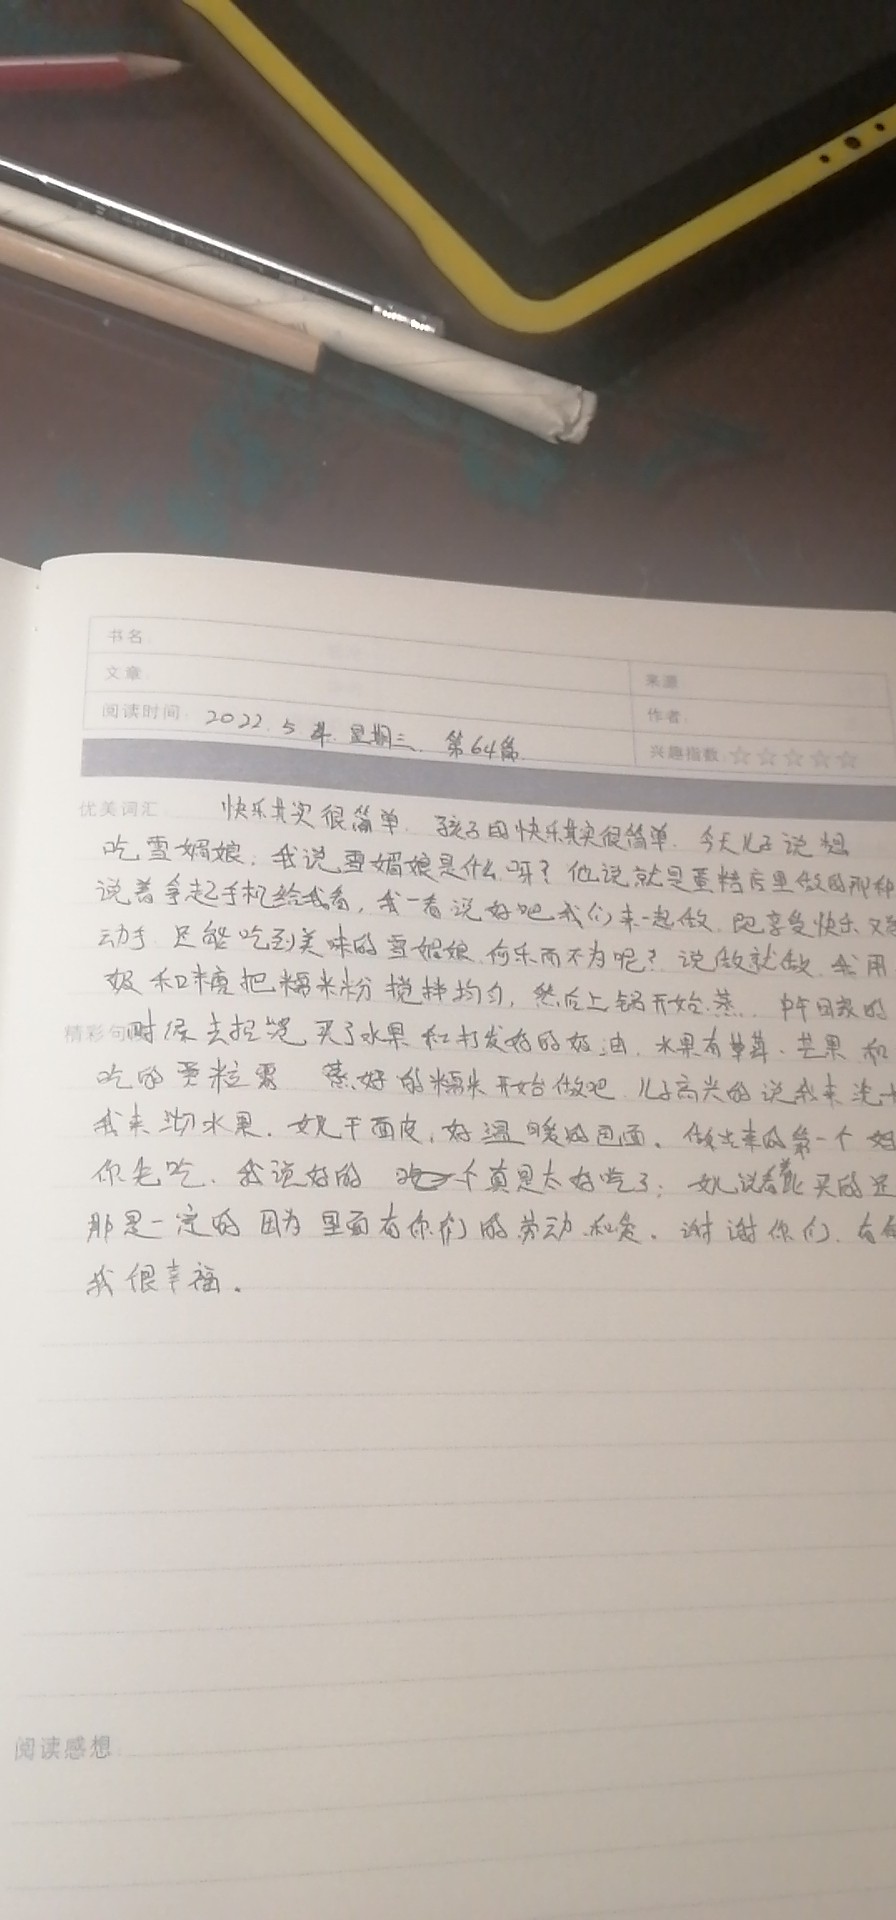 书名
文章
来源
阅读时间: 2022.5 星期三. 第64篇
作者
兴趣指数 ☆☆☆☆☆
优美词汇
快乐其实很简单. 孩子的快乐其实很简单. 今天儿子说想
吃雪媚娘, 我说雪媚娘是什么呀? 他说就是蛋糕店里做的那种
说着拿起手机给我看, 我一看说好吧我们来一起做. 既享受快乐又
动手 还能吃到美味的雪媚娘 何乐而不为呢? 说做就做. 用
奶和糖把糯米粉搅拌均匀, 然后上锅开始蒸. 中午回家的
精彩句
时候去超市买了水果和打发好的奶油. 水果有草莓. 芒果 和
吃的 蒸好的糯米开始做吧 儿子高兴的说我来洗
我来切水果. 女儿干面皮, 好温暖的画面. 做出来的第一个 妈
你先吃. 我说好的 一个真是太好吃了; 女儿说着比买的还
那是一定的 因为里面有你们的劳动和爱. 谢谢你们. 有
我很幸福.
阅读感想